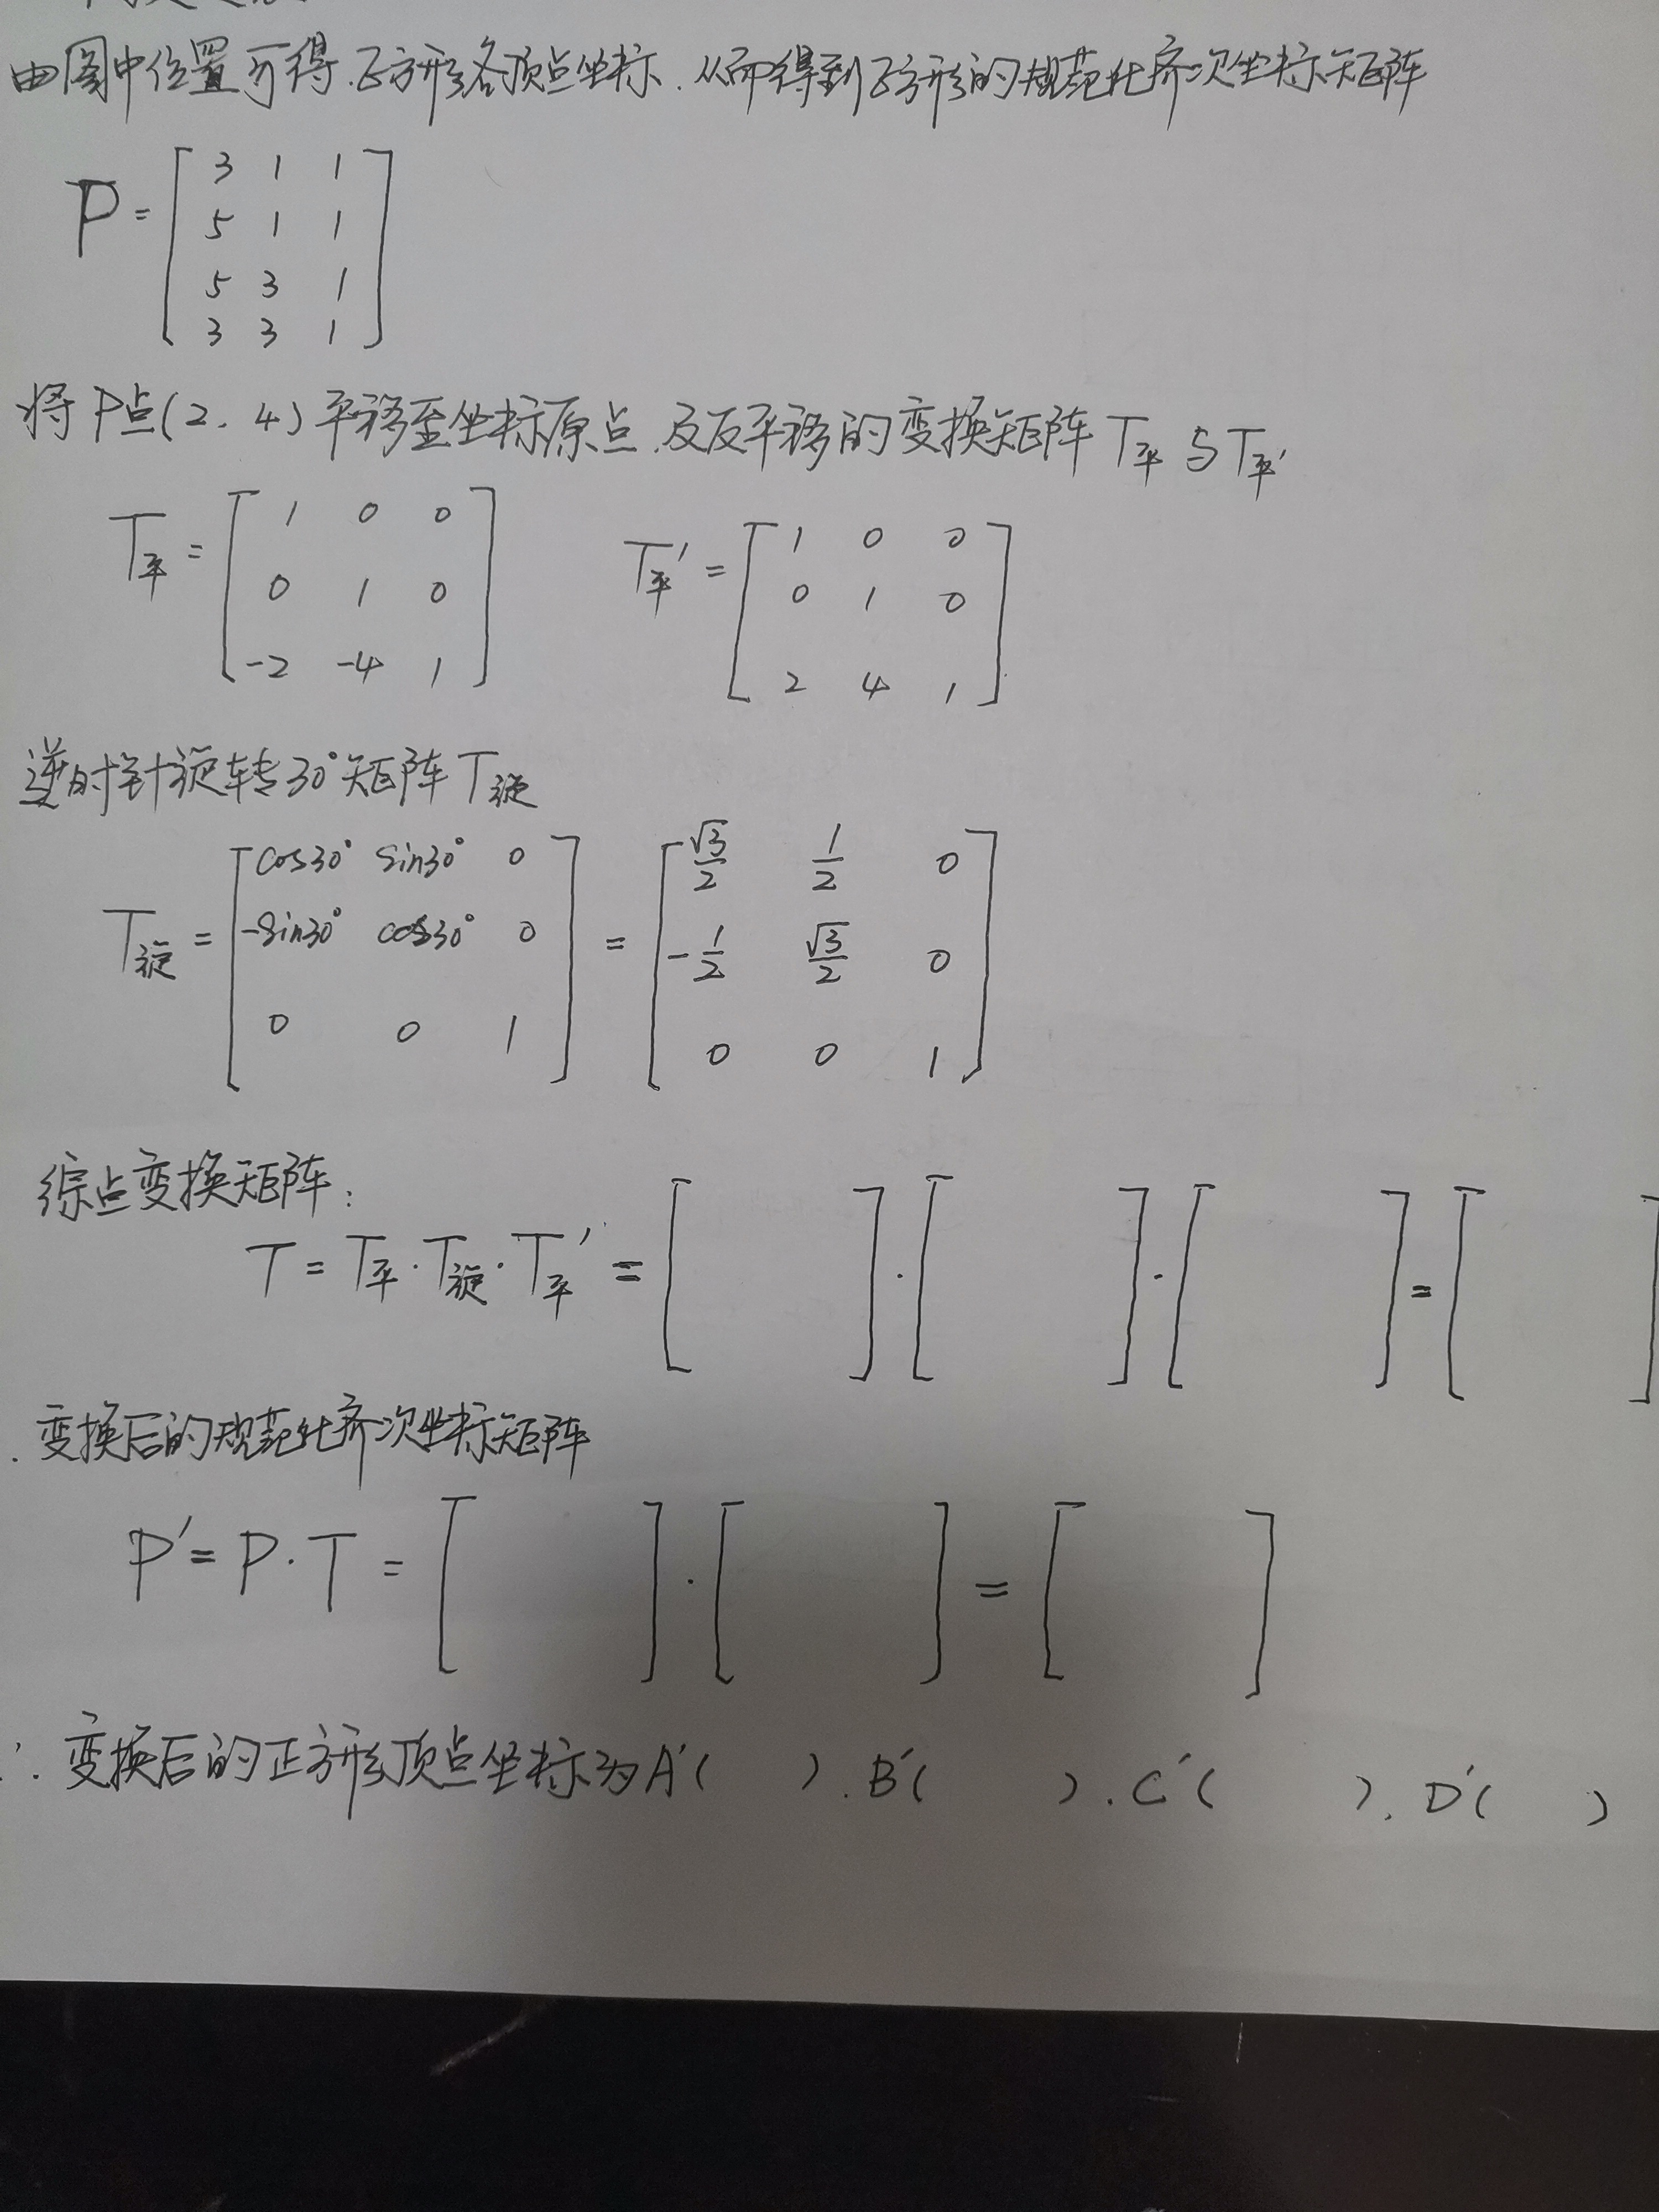 由图中位置可得.正方形各顶点坐标.从而得到正方形的规范化齐次坐标矩阵
P = [ 3 1 1
5 1 1
5 3 1
3 3 1 ]
将P点(2,4)平移至坐标原点.及反平移的变换矩阵T平与T平'
T平 = [ 1 0 0
0 1 0
-2 -4 1 ]
T平' = [ 1 0 0
0 1 0
2 4 1 ]
逆时针旋转30°矩阵T旋
T旋 = [ cos30° sin30° 0
-sin30° cos30° 0
0 0 1 ]
= [ √3/2 1/2 0
-1/2 √3/2 0
0 0 1 ]
变换矩阵:
T = T平·T旋·T平' = [ ]·[ ]·[ ] = [ ]
变换后的规范化齐次坐标矩阵
P' = P·T = [ ]·[ ] = [ ]
∴变换后的正方形顶点坐标为A'( ).B'( ).C'( ).D'( )